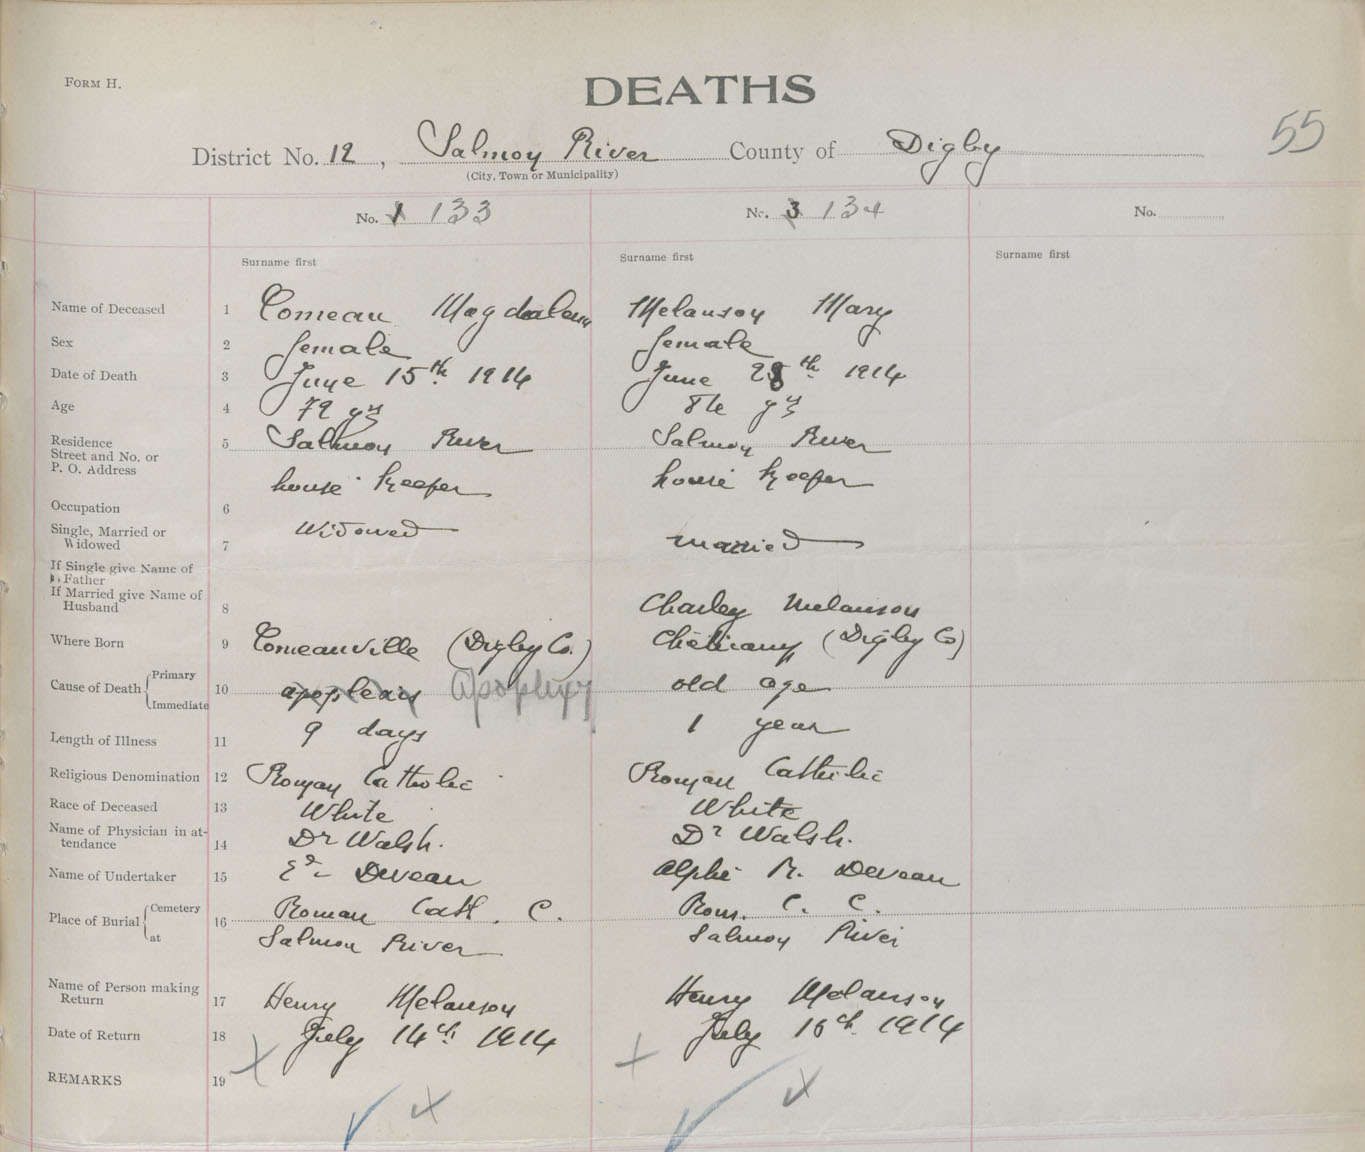 FORM H.
DEATHS
55
District No. 12, Salmon River County of Digby
(City, Town or Municipality)
No. 1 133
No. 3 134
No.
Surname first
Surname first
Surname first
Name of Deceased 1 Comeau Magdalene Melanson Mary
Sex 2 female female
Date of Death 3 June 15th 1914 June 28th 1914
Age 4 79 yrs 86 yrs
Residence Street and No. or P. O. Address 5 Salmon River Salmon River
Occupation 6 house keeper house keeper
Single, Married or Widowed 7 Widowed married
If Single give Name of Father
If Married give Name of Husband 8 Charley Melanson
Where Born 9 Comeauville (Digby Co.) (Digby Co)
Cause of Death { Primary Immediate 10 apoplexis Apoplexy old age
Length of Illness 11 9 days 1 year
Religious Denomination 12 Roman Catholic Roman Catholic
Race of Deceased 13 White White
Name of Physician in attendance 14 Dr Walsh. Dr Walsh.
Name of Undertaker 15 Deveau Alphé R. Deveau
Place of Burial { Cemetery at 16 Roman Cath. C. Rom. C. C.
Salmon River Salmon River
Name of Person making Return 17 Henry Melanson Henry Melanson
Date of Return 18 July 14th 1914 July 16th 1914
REMARKS 19